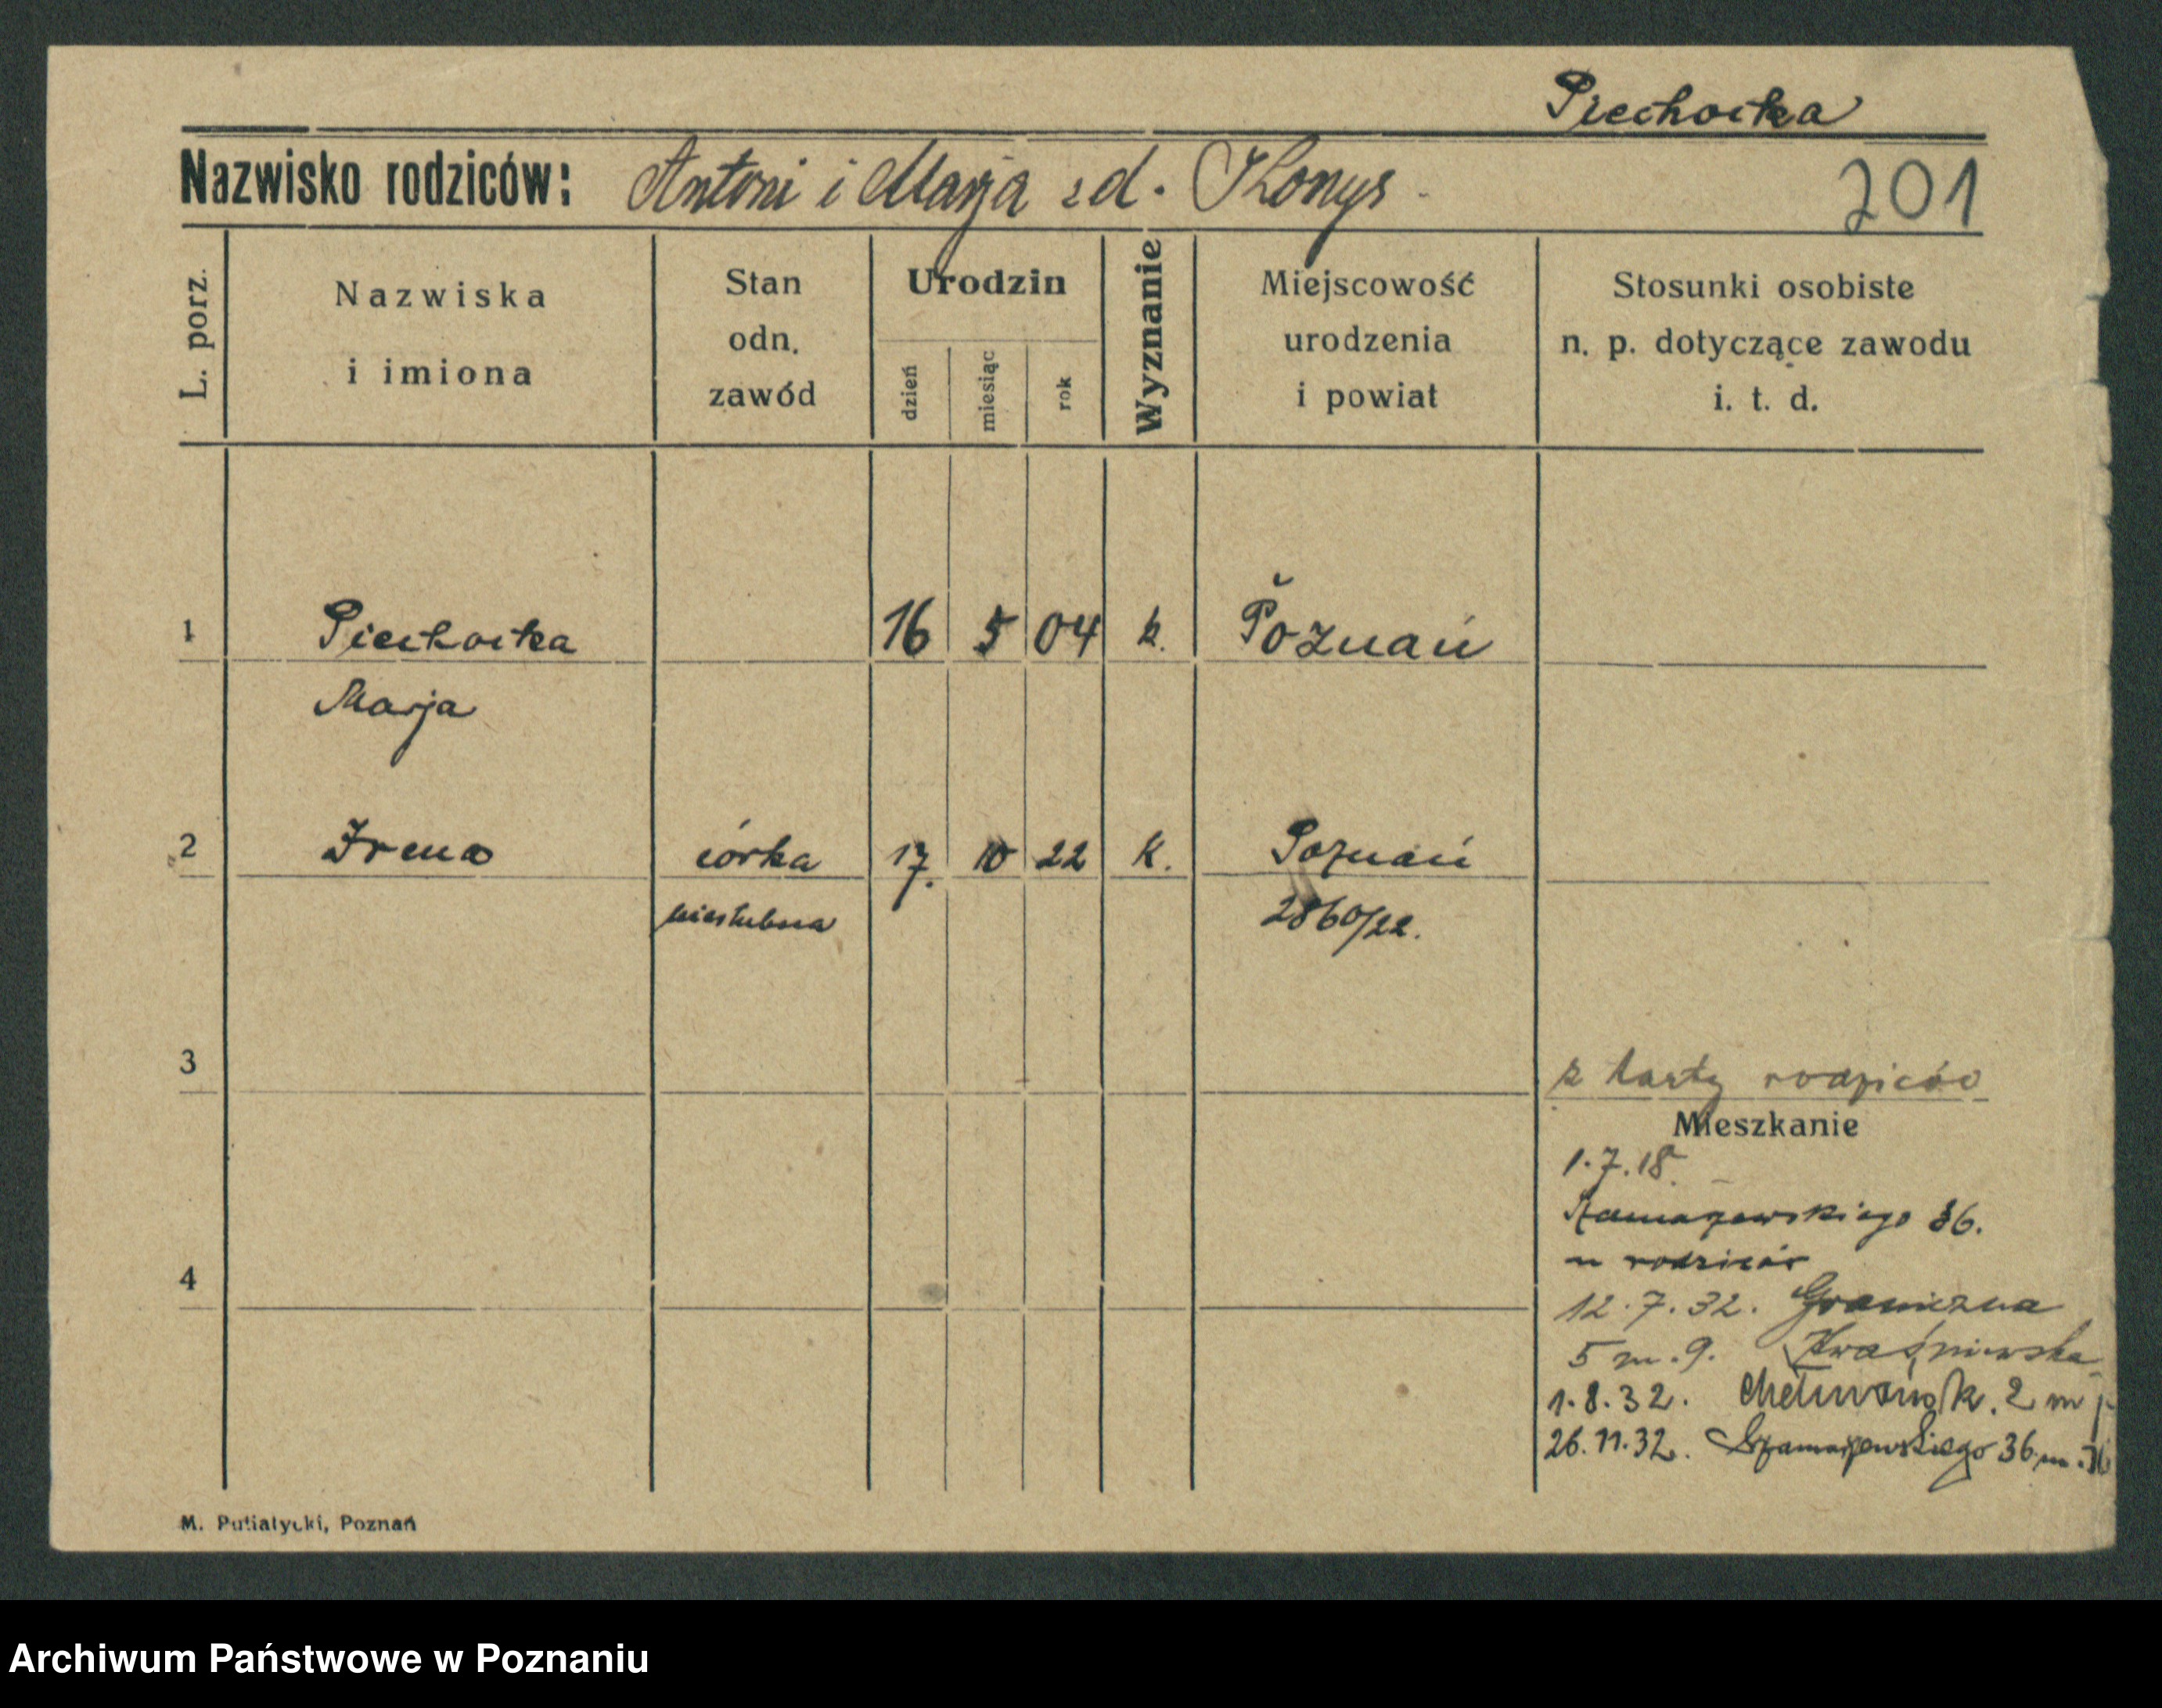 Piechocka
Nazwisko rodziców: Antoni i Marja zd. Konys
201
L. porz.
Nazwiska
i imiona
Stan
odn.
zawód
Urodzin
dzień
miesiąc
rok
Wyznanie
Miejscowość
urodzenia
i powiat
Stosunki osobiste
n. p. dotyczące zawodu
i. t. d.
1 Piechocka 16 5 04 k. Poznań
Marja
2 Irena córka 17. 10 22 k. Poznań
nieślubna 2860/22.
3 z karty rodziców
Mieszkanie
1.7.18
36.
u rodziców
4
12.7.32. Graniczna
5 m. 9. Kwaśniewska
1.8.32. 2 m
26.11.32. Szamarzewskiego 36 m.
M. Putiatycki, Poznań
Archiwum Państwowe w Poznaniu